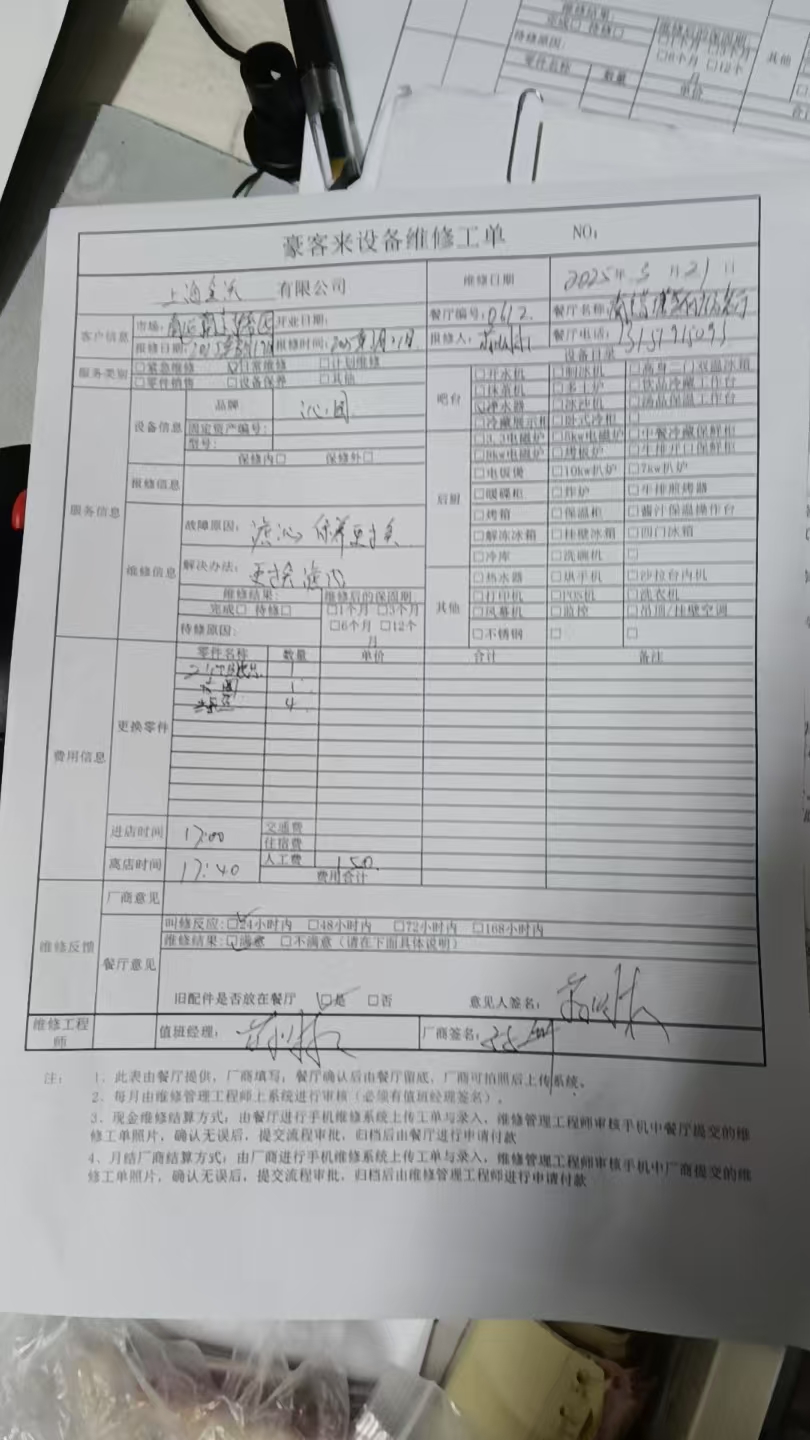 豪客来设备维修工单 NO:
上海 有限公司
维修日期 2025年5月21日
客户信息 市场: 开业日期: 餐厅编号:0612. 餐厅名称:
报修日期: 报修时间: 报修人: 餐厅电话:
服务类别 □紧急维修 □日常维修 □计划维修 设备目录
□零件销售 □设备保养 □其他
吧台 □开水机 □制冰机 □高身二门双温冰箱
□抹茶机 □多士炉 □饮品冷藏工作台
□净水器 □冰沙机 □汤品保温工作台
□冷藏展示柜 □卧式冷柜 □
服务信息 设备信息 品牌 沁园
固定资产编号:
型号:
保修内□ 保修外□
报修信息
后厨 □3.5电磁炉 □5kw电磁炉 □中餐冷藏保鲜柜
□8kw电磁炉 □烤板炉 □牛排开口保鲜柜
□电饭煲 □10kw扒炉 □7kw扒炉
□暖碟柜 □炸炉 □牛排煎烤器
□烤箱 □保温柜 □酱汁保温操作台
□解冻冰箱 □挂壁冰箱 □四门冰箱
□冷库 □洗碗机 □
维修信息 故障原因: 滤沁 保养更换
解决办法: 更换滤
维修结果: 维修后的保固期
完成□ 待修□ □1个月 □3个月
待修原因: □6个月 □12个月
其他 □热水器 □烘手机 □沙拉台内机
□打印机 □POS机 □洗衣机
□风幕机 □监控 □吊顶/挂壁空调
□不锈钢 □ □
费用信息 更换零件 零件名称 数量 单价 合计 备注
1
1
4
进店时间 17:00 交通费
住宿费
离店时间 17:40 人工费 150.
费用合计
维修反馈 厂商意见
餐厅意见 叫修反应:□24小时内 □48小时内 □72小时内 □168小时内
维修结果:□满意 □不满意(请在下面具体说明)
旧配件是否放在餐厅 □是 □否 意见人签名:
维修工程师 值班经理: 厂商签名:
注: 1、此表由餐厅提供,厂商填写;餐厅确认后由餐厅留底、厂商可拍照后上传系统。
2、每月由维修管理工程师上系统进行审核(必须有值班经理签名)。
3、现金维修结算方式:由餐厅进行手机维修系统上传工单与录入,维修管理工程师审核手机中餐厅提交的维
修工单照片,确认无误后,提交流程审批,归档后由餐厅进行申请付款
4、月结厂商结算方式:由厂商进行手机维修系统上传工单与录入,维修管理工程师审核手机中厂商提交的维
修工单照片,确认无误后,提交流程审批,归档后由维修管理工程师进行申请付款